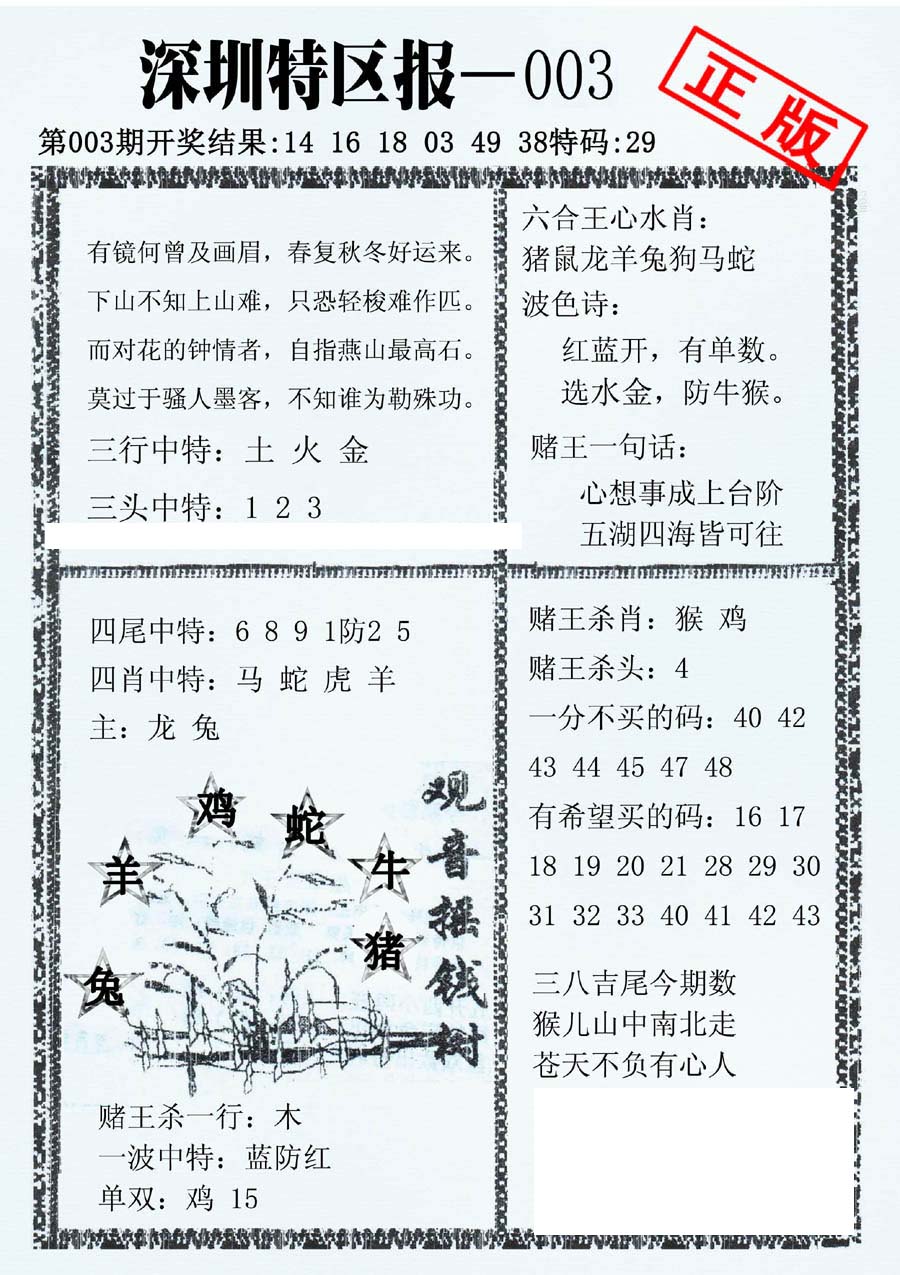 深圳特区报—003
正版
第003期开奖结果:14 16 18 03 49 38特码:29
有镜何曾及画眉，春复秋冬好运来。
下山不知上山难，只恐轻梭难作匹。
而对花的钟情者，自指燕山最高石。
莫过于骚人墨客，不知谁为勒殊功。
三行中特：土 火 金
三头中特：1 2 3
六合王心水肖：
猪鼠龙羊兔狗马蛇
波色诗：
红蓝开，有单数。
选水金，防牛猴。
赌王一句话：
心想事成上台阶
五湖四海皆可往
四尾中特：6 8 9 1防2 5
四肖中特：马 蛇 虎 羊
主：龙 兔
鸡
蛇
羊
牛
猪
兔
观音摇钱树
赌王杀一行：木
一波中特：蓝防红
单双：鸡 15
赌王杀肖：猴 鸡
赌王杀头：4
一分不买的码：40 42
43 44 45 47 48
有希望买的码：16 17
18 19 20 21 28 29 30
31 32 33 40 41 42 43
三八吉尾今期数
猴儿山中南北走
苍天不负有心人